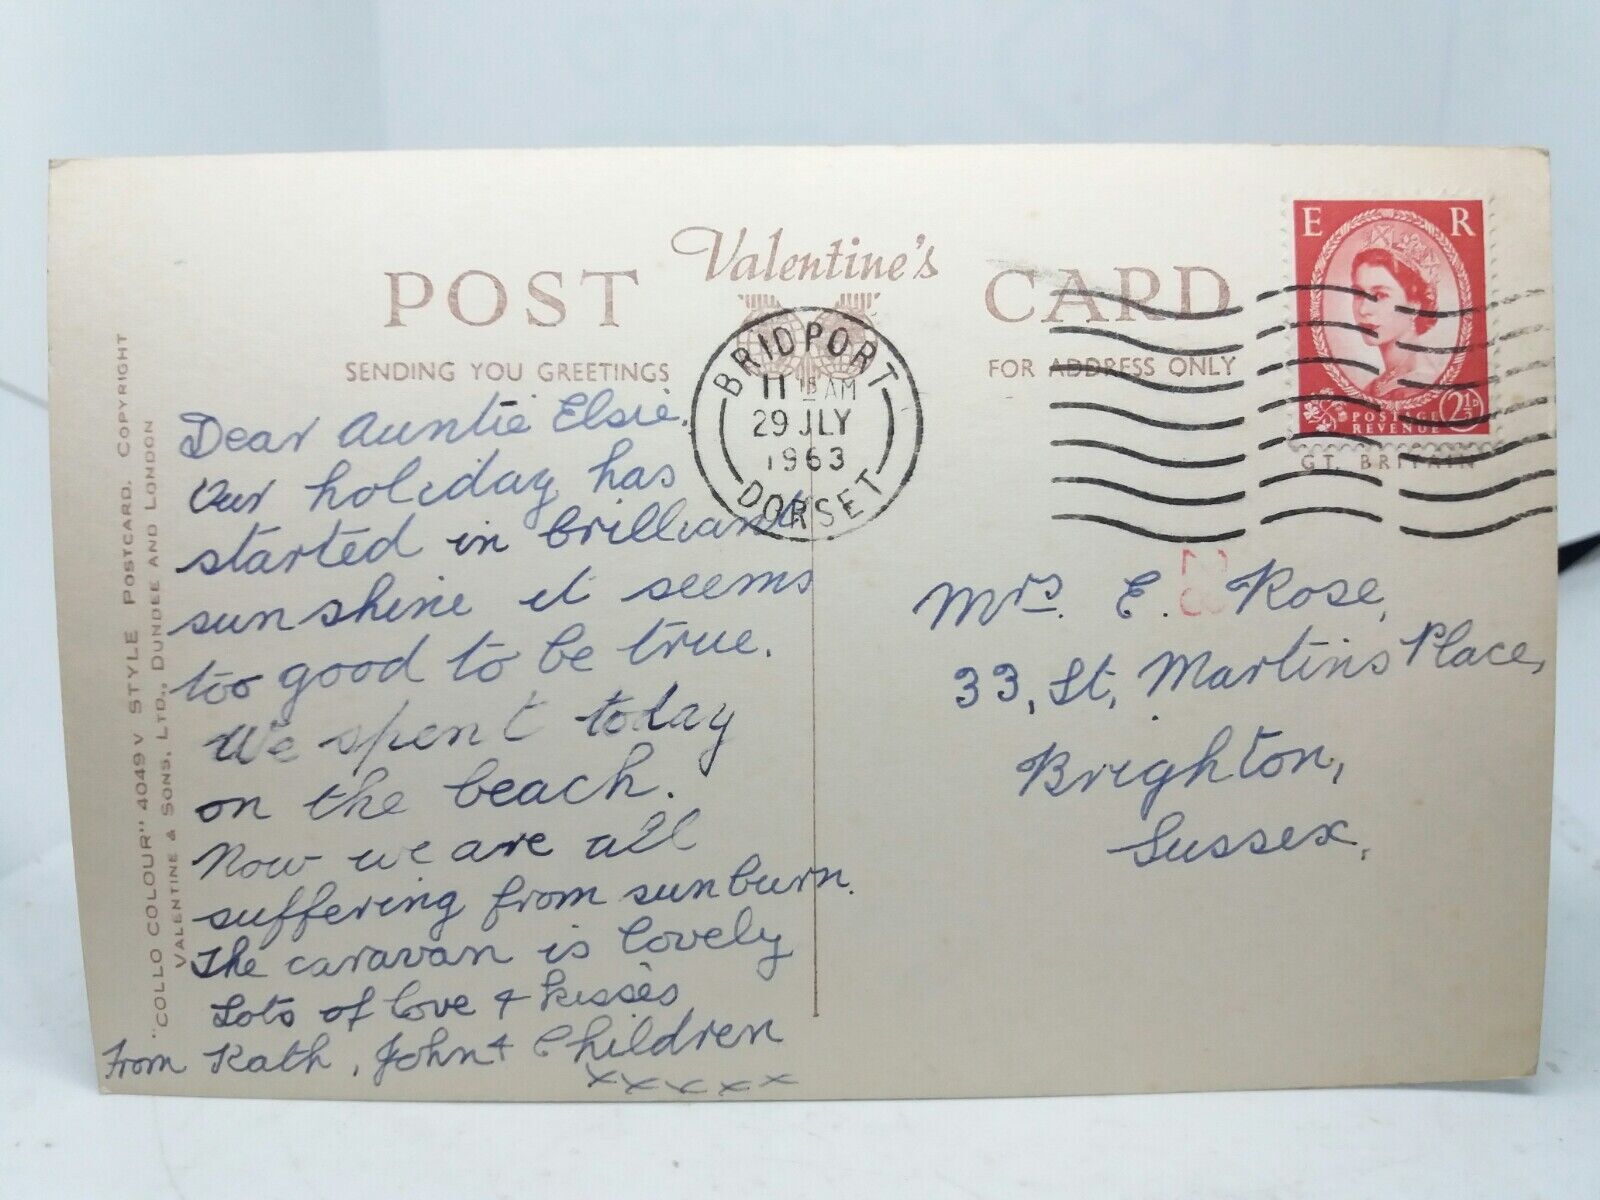 Valentine's
POST CARD
SENDING YOU GREETINGS
FOR ADDRESS ONLY
E R
POSTAGE
REVENUE
2½D
GT. BRITAIN
BRIDPORT
11 15 AM
29 JLY
1963
DORSET
"COLLO COLOUR" 4049 V STYLE POSTCARD. COPYRIGHT
VALENTINE & SONS, LTD., DUNDEE AND LONDON
Dear Auntie Elsie.
Our holiday has
started in brilliant
sunshine it seems
too good to be true.
We spent today
on the beach.
Now we are all
suffering from sunburn.
The caravan is lovely
Lots of love & kisses
From Kath, John & Children
x x x x x
Mrs. E. Rose,
33, St, Martins Place,
Brighton,
Sussex,